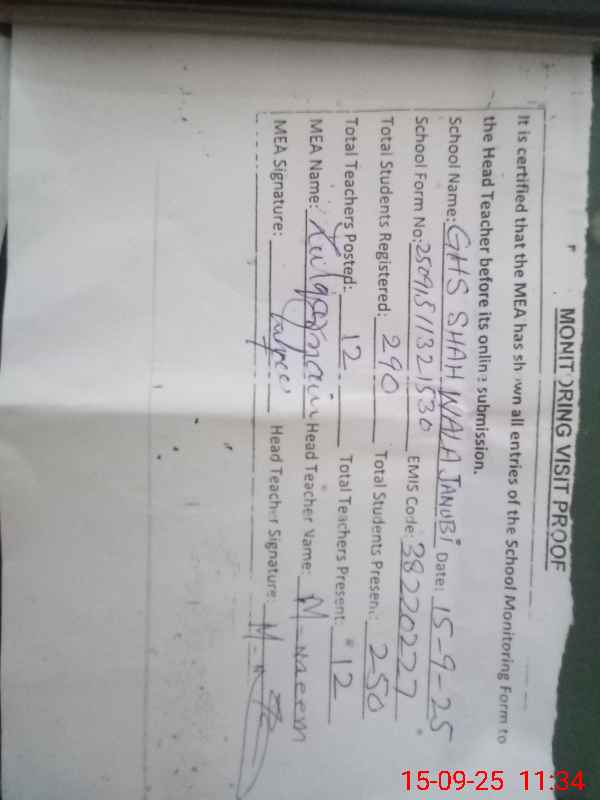 MONITORING VISIT PROOF
It is certified that the MEA has shown all entries of the School Monitoring Form to
the Head Teacher before its online submission.
School Name: GHS SHAH WALA JANUBi Date: 15-9-25
School Form No: 25091511321530 EMIS Code: 38220227
Total Students Registered: 290 Total Students Present: 250
Total Teachers Posted: 12 Total Teachers Present: 12
MEA Name: Head Teacher Name: M-naeem
MEA Signature: Head Teacher Signature:
15-09-25 11:34